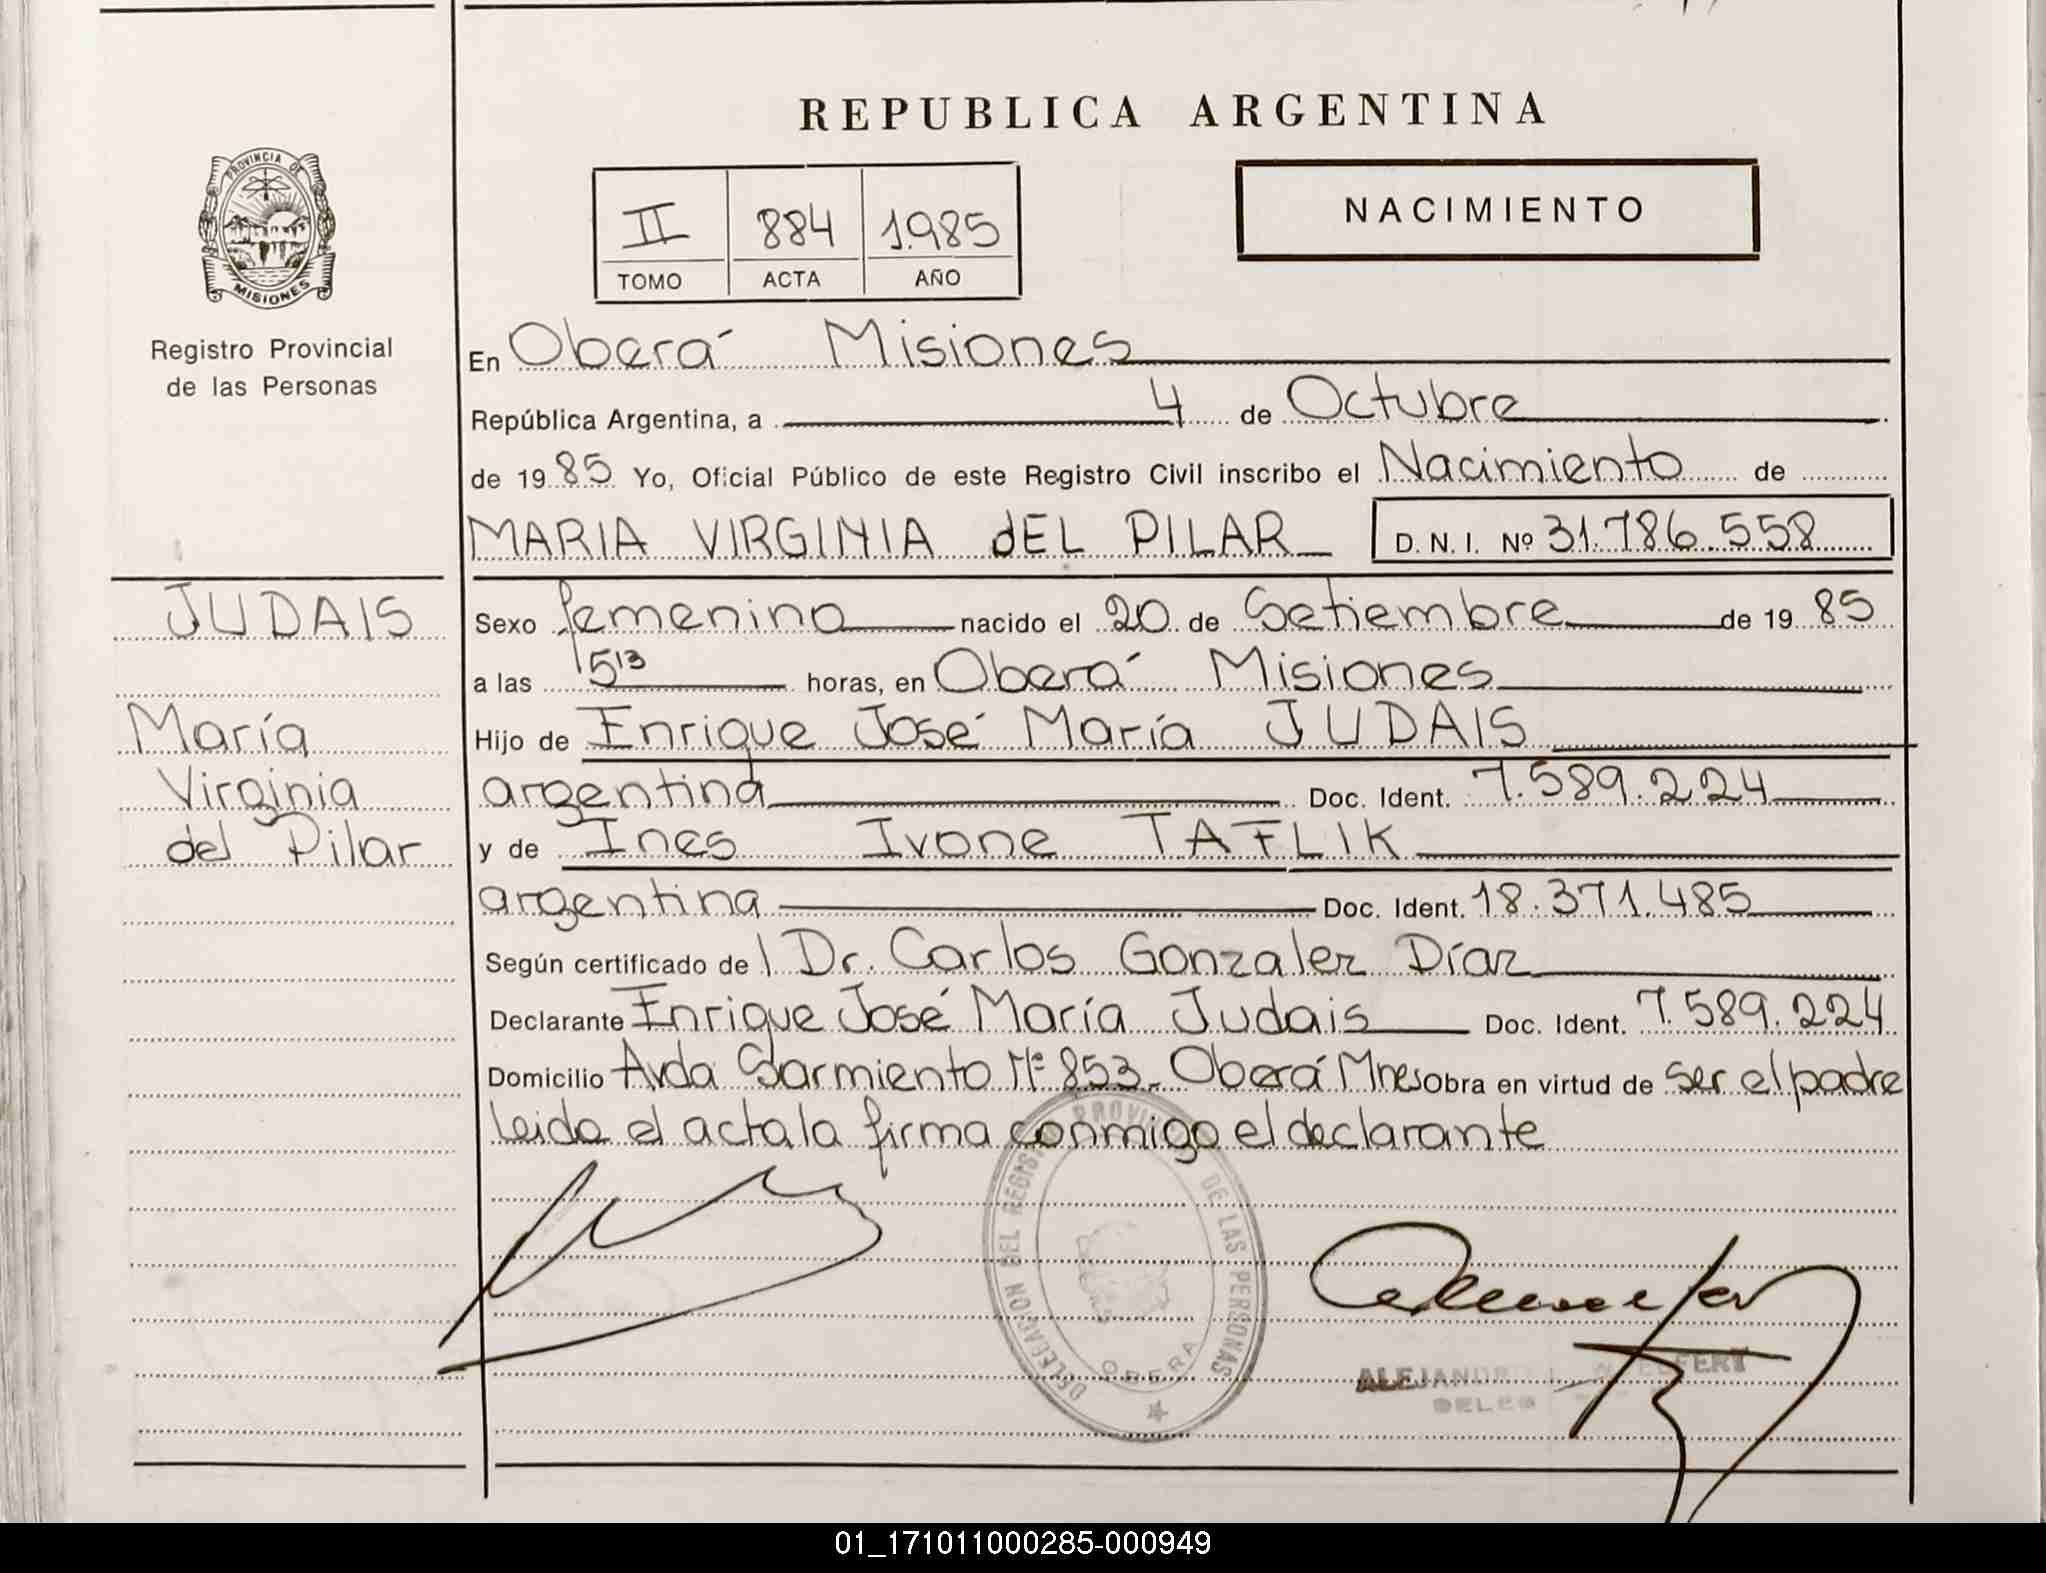 REPUBLICA ARGENTINA
PROVINCIA DE
MISIONES
Registro Provincial
de las Personas
NACIMIENTO
II 884 1.985
TOMO ACTA AÑO
En Oberá Misiones
República Argentina, a 4 de Octubre
de 19 85 Yo, Oficial Público de este Registro Civil inscribo el Nacimiento de
MARIA VIRGINIA dEL PILAR D. N. I. Nº 31.786.558
JUDAIS
María
Virginia
del Pilar
Sexo femenino nacido el 20 de Setiembre de 19 85
a las 15 13 horas, en Oberá Misiones
Hijo de Enrique José María JUDAIS
argentina Doc. Ident. 7.589.224
y de Ines Ivone TAFLIK
argentina Doc. Ident. 18.371.485
Según certificado de l Dr. Carlos Gonzalez Díaz
Declarante Enrique José María Judais Doc. Ident. 7.589.224
Domicilio Avda Sarmiento Nº 853. Oberá Mnes obra en virtud de ser el padre
leida el acta la firma conmigo el declarante
DELEGACION DEL REGISTRO PROVINCIAL DE LAS PERSONAS
OBERA
01_171011000285-000949